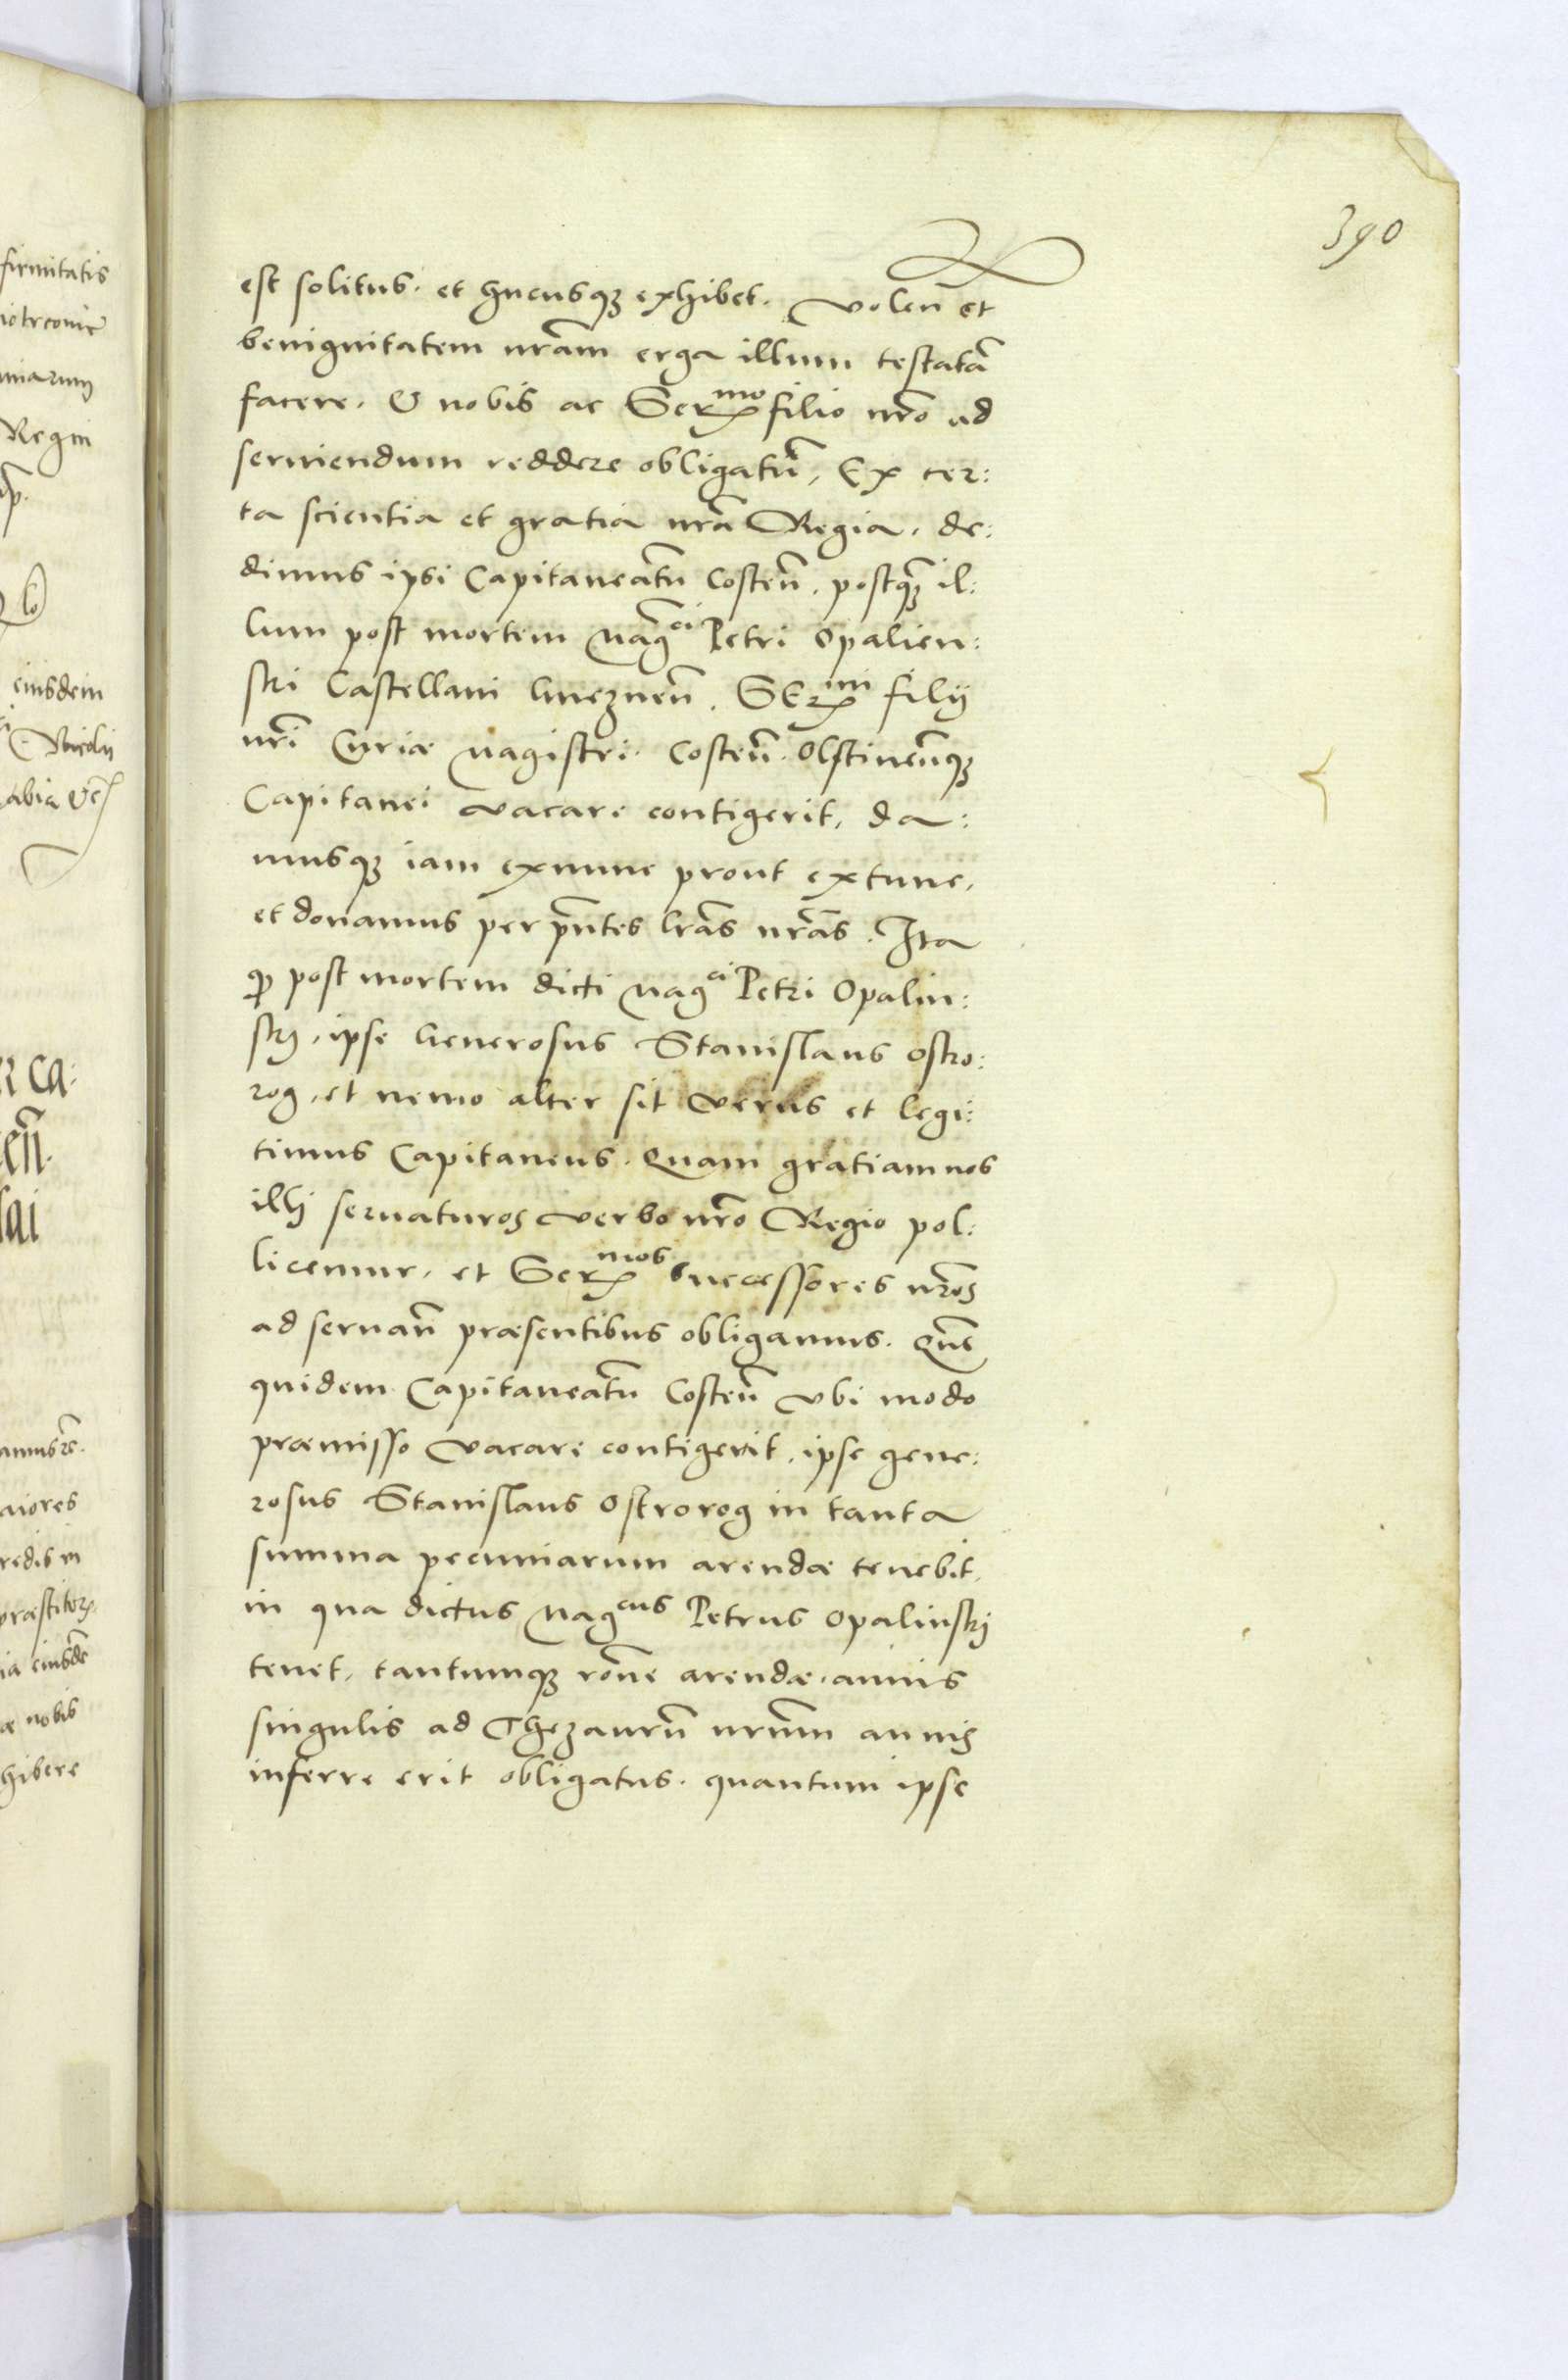 390
est solitus. et hucusq3 exhibet. volen̄ et
benignitatem nr̄am erga illum testatā
facere. & nobis ac Ser^mo filio nr̄o ad
seruiendum reddere obligatū, Ex cer:
ta scientia et gratia nr̄a Regia. de:
dimus ipsi Capitaneatū Costeñ. postq̄3 il:
lum post mortem Mag^ci Petri Opalien:
ski Castellani Gnezneñ. SEr^mi filij
nr̄i Curiæ Magistri. Costeñ. Olstineñq3
Capitanei vacare contigerit, da:
musq3 iam exnunc prout extunc,
et donamus per pn̄tes lr̄as nr̄as. Ita
q̄ post mortem dicti Mag^ci Petri Opalin:
skj, ipse Generosus Stanislaus Ostro:
rog, et nemo alter sit verus et legi:
timus Capitaneus. Quam gratiam nos
illj seruaturos verbo nr̄o Regio pol:
licemur, et Ser^mos Successores nr̄os
ad seruan̄ præsentibus obligamus. Quē
quidem Capitaneatū Costeñ vbi modo
præmisso vacare contigerit, ipse gene:
rosus Stanislaus Ostrorog in tanta
summa pecuniarum arendæ tenebit,
in qua dictus Mag^cus Petrus Opalinskj
tenet, tantumq3 rōne arendæ, annis
singulis ad Thezaurū nr̄um annis
inferre erit obligatus. quantum ipse
firmitatis
Regni
eiusdem
CA:
eñ.
aiores
redis in
ia eiusdē
æ nobis
hibere